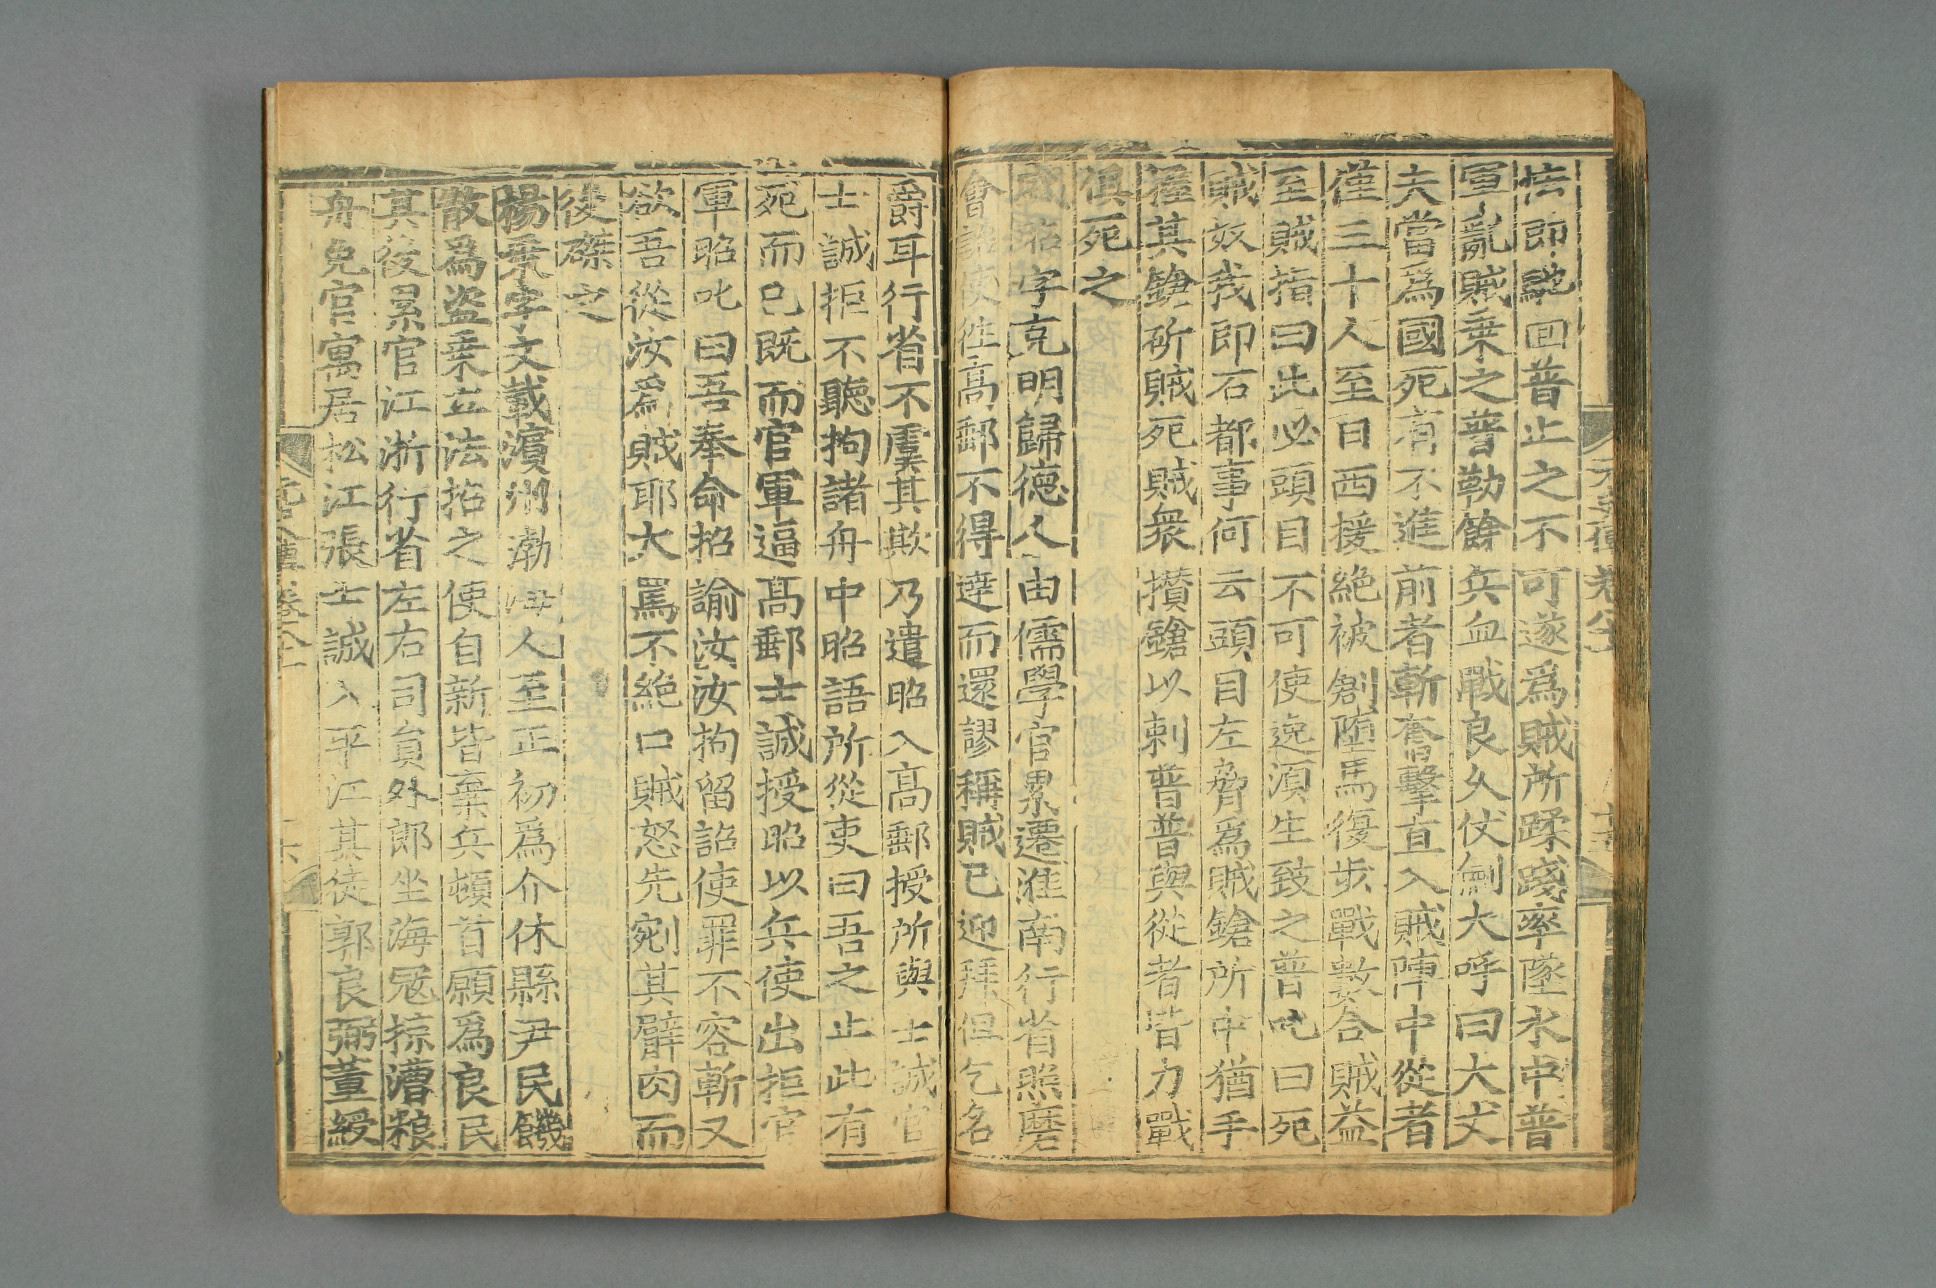 怯即跪回普止之不可遂爲賊所蹂踐率墜水中普
軍亂賊乗之普勒餘兵血戰良乆仗劍大呼曰大丈
夫當爲國死有不進前者斬奮擊直入賊陣中從者
僅三十人至日西援絶被創墮馬復步戰數合賊益
至賊指曰此必頭目不可使逸須生致之普叱曰死
賊奴我即石都事何云頭目左脅爲賊鎗所中猶手
握其鎗斫賊死賊衆攅鎗以刺普普與從者皆力戰
俱死之
盛昭字克明歸德人由儒學官累遷淮南行省照磨
會詔使徃高郵不得達而還謬稱賊已迎拜但乞名
爵耳行省不虞其欺乃遣昭入高郵授所與士誠官
士誠拒不聽拘諸舟中昭語所從吏曰吾之止此有
死而已既而官軍逼高郵士誠授昭以兵使出拒官
軍昭叱曰吾奉命招諭汝汝拘留詔使罪不容斬又
欲吾從汝爲賊耶大罵不絶口賊怒先剜其臂肉而
後磔之
楊乗字文載濱州渤海人至正初爲介休縣尹民饑
散爲盗乗立法招之使自新皆棄兵頓首願爲良民
其後累官江浙行省左右司負外郎坐海冦掠漕粮
舟免官寓居松江張士誠入平江其徒郭良弼董綬
元史傳卷八十
十五
元史傳卷八十
十六